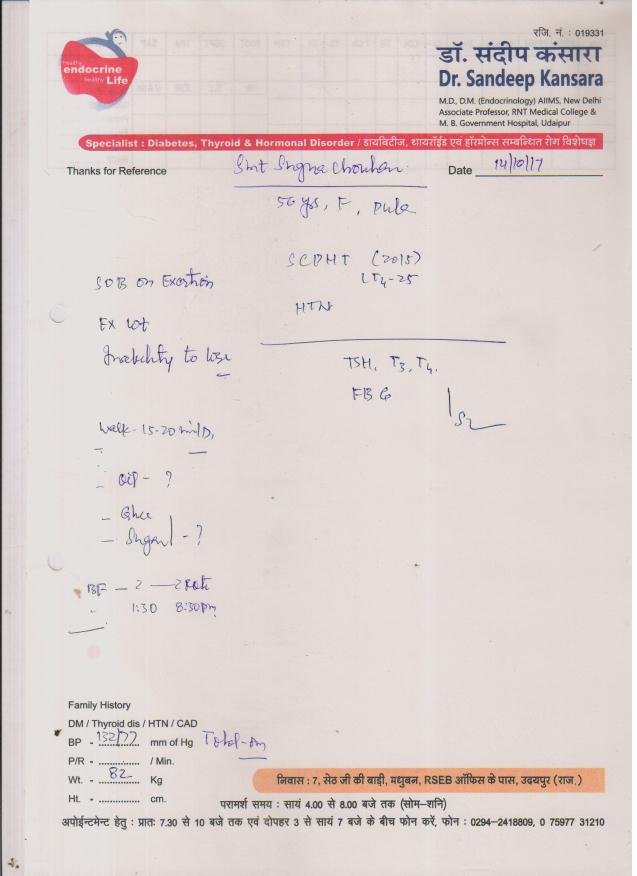 रजि. नं. : 019331
healthy
endocrine
healthy Life
डॉ. संदीप कंसारा
Dr. Sandeep Kansara
M.D., D.M. (Endocrinology) AIIMS, New Delhi
Associate Professor, RNT Medical College &
M. B. Government Hospital, Udaipur
Specialist : Diabetes, Thyroid & Hormonal Disorder / डायबिटीज, थायरॉईड एवं हॉरमोन्स सम्बन्धित रोग विशेषज्ञ
Thanks for Reference
Smt Sugna Chouhan
Date 14/10/17
56 yrs, F,
(2015)
LT4-25
SOB on Exertion
HTN
Ex wt
Inability to lose
TSH, T3, T4.
FBG
Walk - 15-20 min/D,
- Oil - ?
- Ghee
- Sugar - ?
BF - 2 - 2 Roti
1:30 8:30pm
Family History
DM / Thyroid dis / HTN / CAD
BP - 132/77 mm of Hg
P/R - .............. / Min.
Wt. - 82 Kg
Ht. - .............. cm.
निवास : 7, सेठ जी की बाड़ी, मधुबन, RSEB ऑफिस के पास, उदयपुर (राज.)
परामर्श समय : सायं 4.00 से 8.00 बजे तक (सोम-शनि)
अपोईन्टमेन्ट हेतु : प्रातः 7.30 से 10 बजे तक एवं दोपहर 3 से सायं 7 बजे के बीच फोन करें, फोन : 0294-2418809, 0 75977 31210